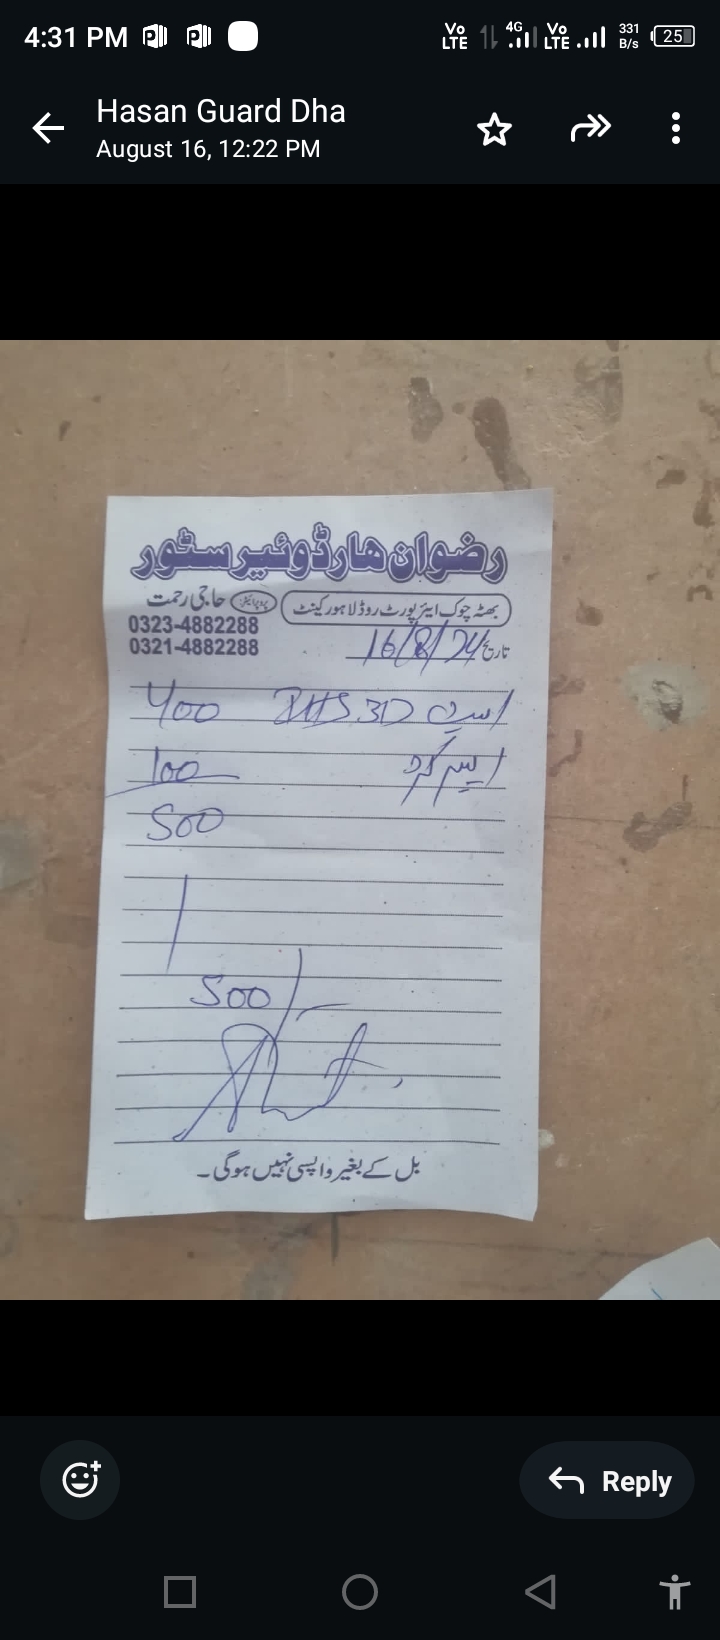 4:31 PM
Vo LTE 4G Vo LTE 331 B/s 25
Hasan Guard Dha
August 16, 12:22 PM
رضوان ھارڈوئیر سٹور
بھٹہ چوک ایئرپورٹ روڈ لاہور کینٹ پروپرائیٹر: حاجی رحمت
0323-4882288
0321-4882288
تاریخ 16/8/24
400
100
500
500/-
بل کے بغیر واپسی نہیں ہوگی۔
Reply